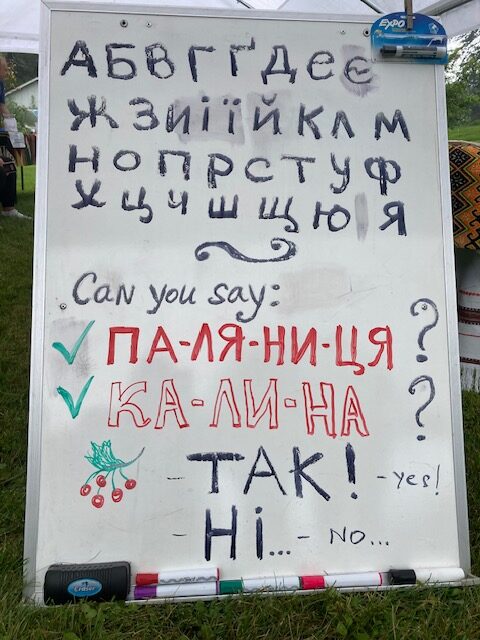 EXPO
А Б В Г Ґ Д е є
Ж З и і ї й К Л М
Н О П Р С Т У Ф
Х Ц Ч Ш Щ Ю Я
Can you say:
ПА-ЛЯ-НИ-ЦЯ ?
КА-ЛИ-НА ?
- ТАК! - yes!
- Ні... - NO...
Eraser